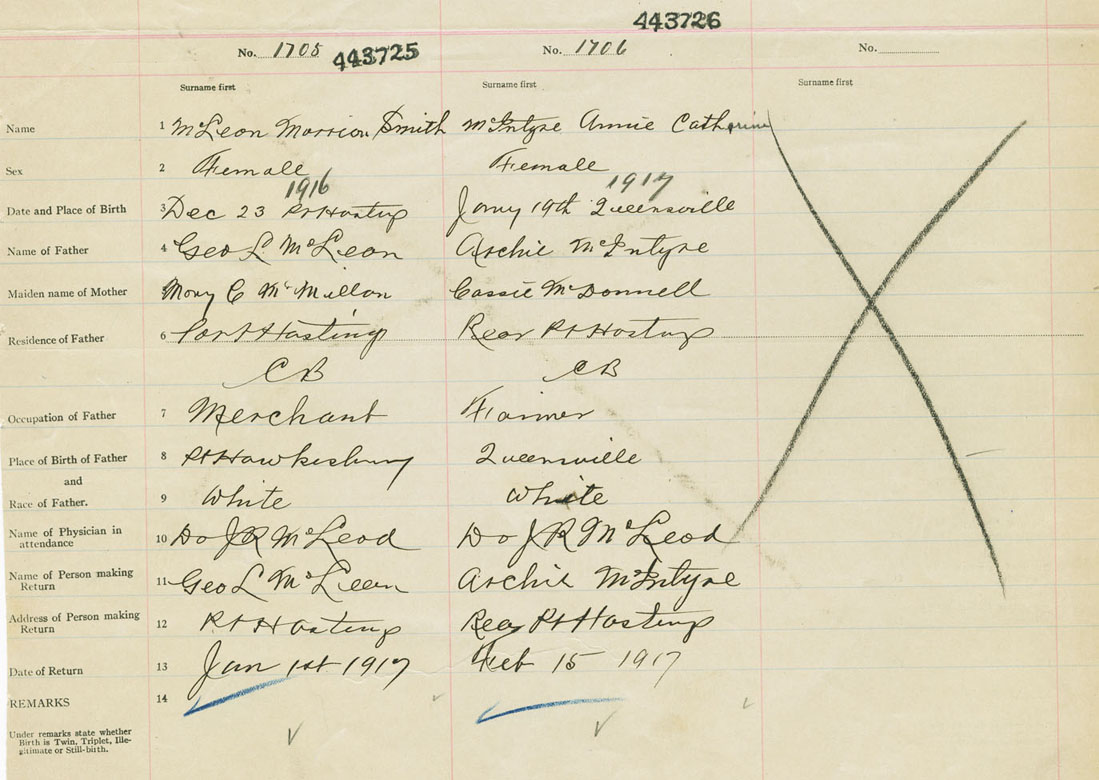 443726
No. 1705 443725 No. 1706 No.
Surname first Surname first Surname first
Name 1 McLeon Marrion Smith McIntyre Annie Catherine
Sex 2 Female Female
1916 1917
Date and Place of Birth 3 Dec 23 Pt Hasting Jany 19th Queensville
Name of Father 4 Geo L McLean Archie McIntyre
Maiden name of Mother Mary C McMillan Cassie McDonnell
Residence of Father 6 Port Hasting Rear Pt Hasting
CB CB
Occupation of Father 7 Merchant Farmer
Place of Birth of Father 8 Pt Hawkesbury Queensville
and
Race of Father. 9 White White
Name of Physician in
attendance 10 Do J R McLeod Do J R McLeod
Name of Person making
Return 11 Geo L McLean Archie McIntyre
Address of Person making
Return 12 Pt Hasting Rear Pt Hasting
Date of Return 13 Jan 1st 1917 Feb 15 1917
REMARKS 14
Under remarks state whether
Birth is Twin, Triplet, Ille-
gitimate or Still-birth.